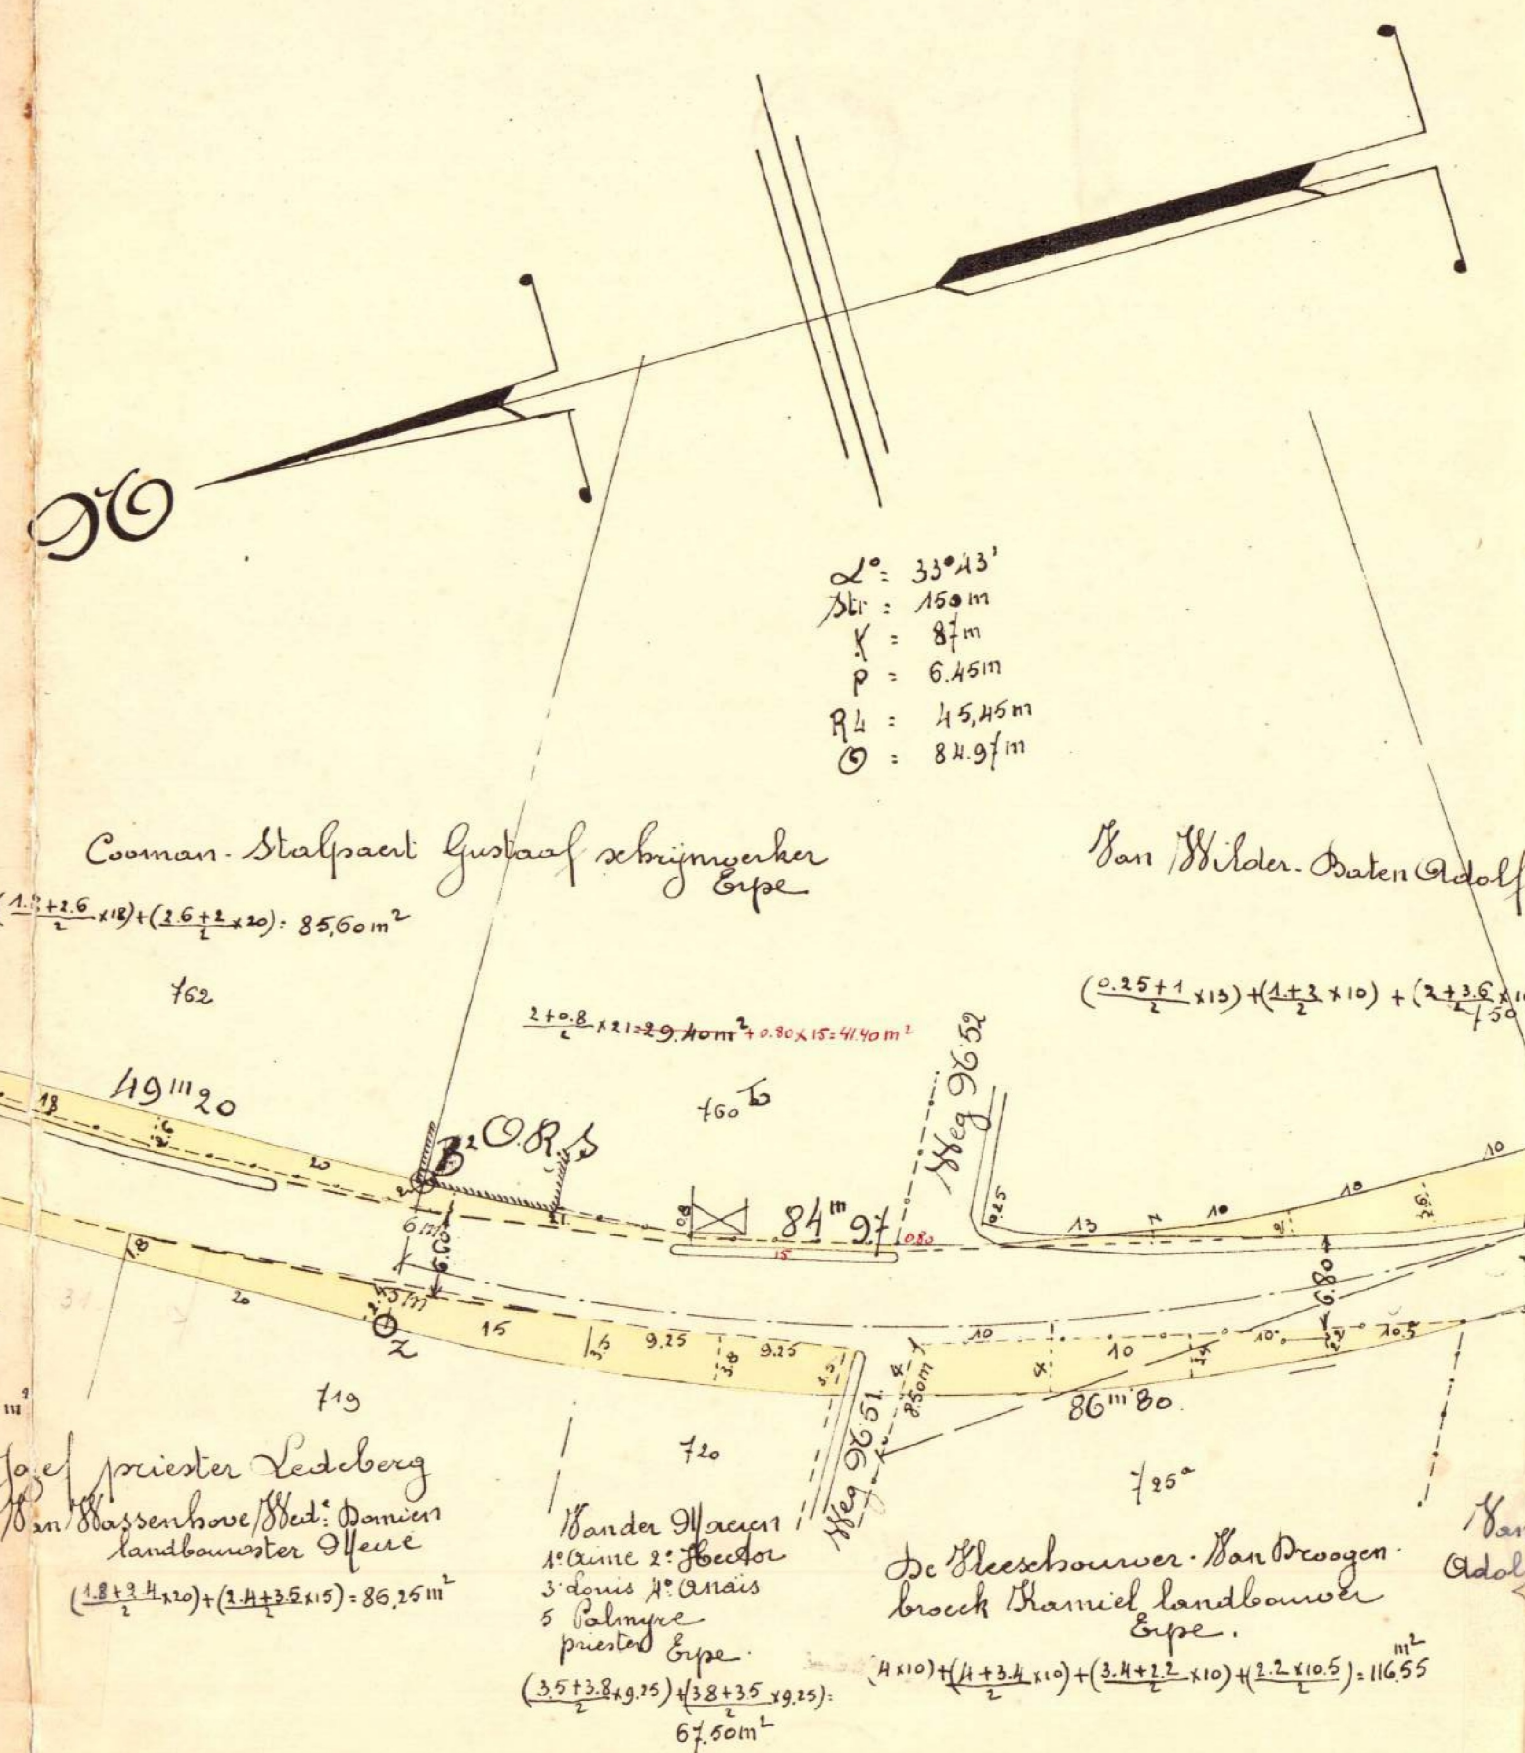 N
α° = 33°43'
Str = 150m
X = 87m
p = 6.45m
R4 = 45,45m
O = 84.97m
Cooman-Stalpaert Gustaaf schrijnwerker
Erpe
(1.8+2.6/2 x18)+(2.6+2/2 x20)= 85,60m²
762
Van Wilder-Baten Adolf
(0.25+1/2 x13)+(1.+2/2 x10)+(2+3.6/2 x1
750
2+0.8/2 x21=29.40m² +0.80x15=41.40m²
760 b
Weg N 52
49m20
18
20
2.6
B² O.R.S
2
21
0.8
84m97
0.80
15
0.25
13
1
10
2
10
3.6
10
6m
6.60
2.4
5m
6.80
1.8
20
Z
15
3.5
9.25
3.8
9.25
3.5
4
8.50m
10
4
10
3.4
10
2.2
10.5
86m80
Weg N 51
719
720
725a
m²
Jozef priester Ledeberg
Van Wassenhove Wed: Damien
landbouwster Meire
(1.8+2.4/2 x20)+(2.4+3.5/2 x15)=86,25m²
Vander Maeren
1° Aimé 2° Hector
3° Louis 4° Anaïs
5 Palmyre
priester Erpe.
(3.5+3.8/2 x9.25)+(3.8+3.5/2 x9.25)=
67.50m²
De Vleeschouwer-Van Droogen-
broeck Kamiel landbouwer
Erpe.
(4x10)+(4+3.4/2 x10)+(3.4+2.2/2 x10)+(2.2x10.5/2)=116.55 m²
Van
Adol